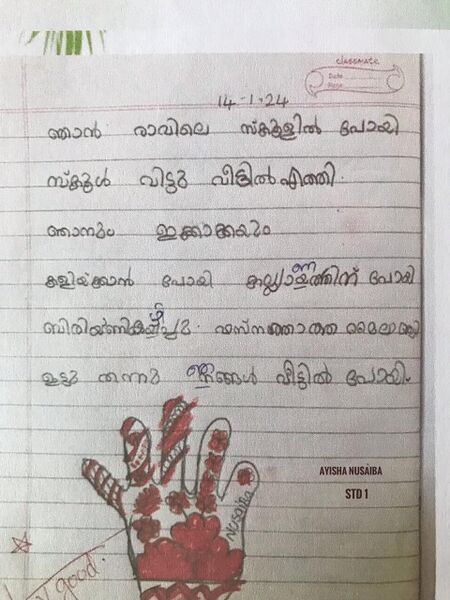 classmate
Date
Page
14-1-24
ഞാൻ രാവിലെ സ്കൂളിൽ പോയി
സ്കൂൾ വിട്ടു വീട്ടിൽ എത്തി.
ഞാനും ഇക്കാക്കയും
കളിയ്ക്കാൻ പോയി കല്ല്യാണത്തിന് പോയി
ബിരിയ്ണികഴിച്ചു. ഹസ്നത്താത്ത മൈലാഞ്ചി
ഇട്ടു തന്നു ഞങ്ങൾ വീട്ടിൽ പോയി.
AYISHA NUSAIBA
STD 1
Nusaiba
good.